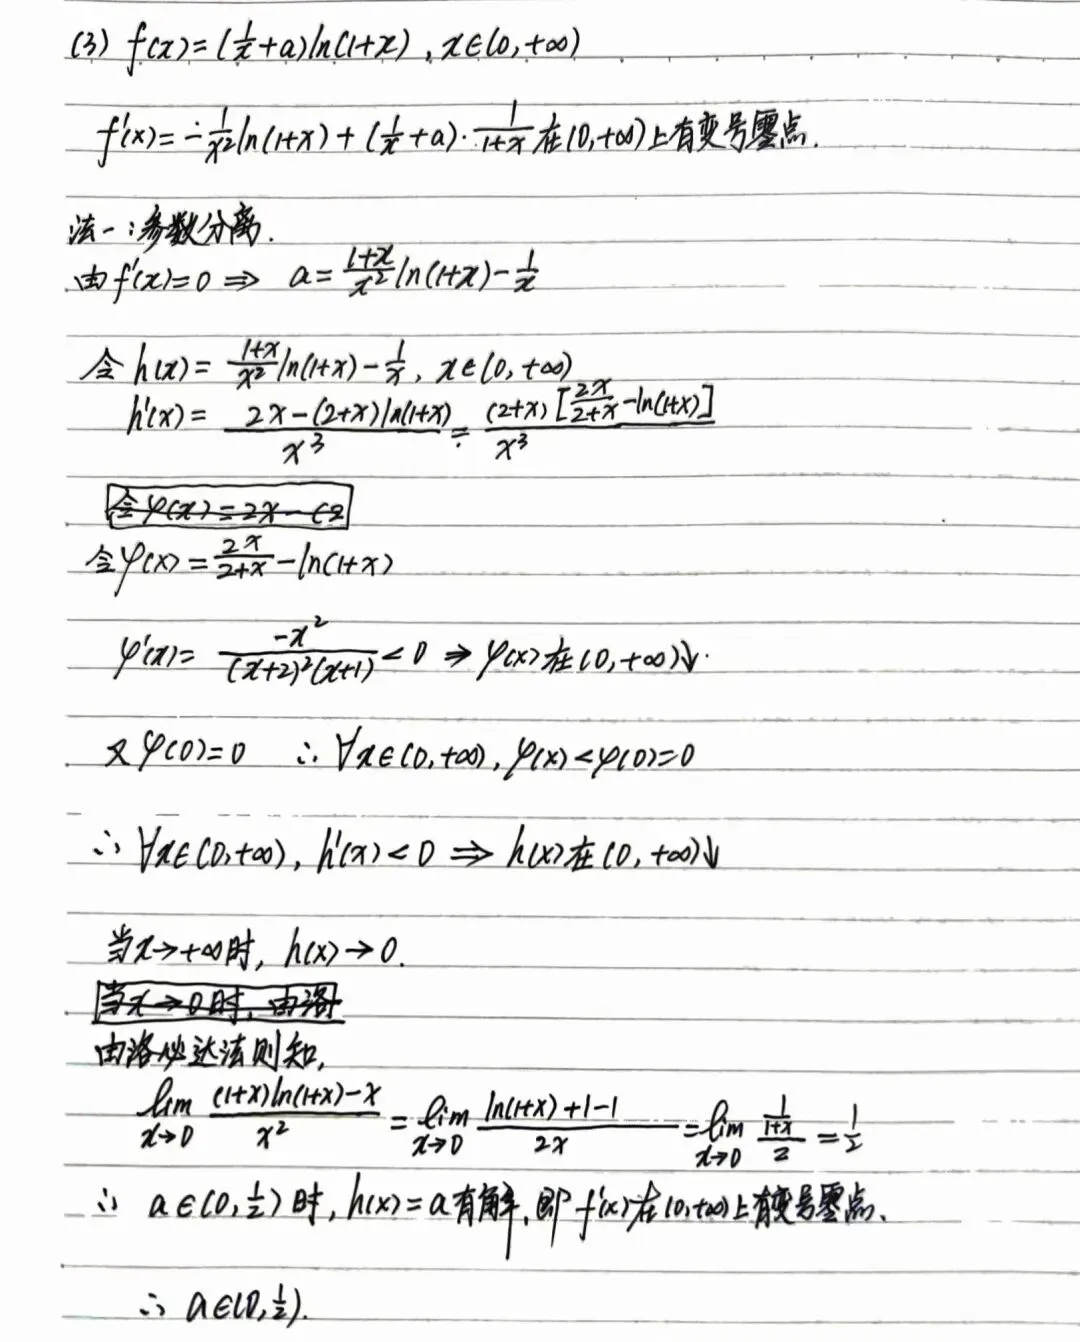 (3) f(x)=(1/x+a)ln(1+x), x∈(0,+∞)
f'(x)=-1/x²ln(1+x)+(1/x+a)·1/(1+x)在(0,+∞)上有变号零点.
法一:参数分离.
由f'(x)=0 ⇒ a=(1+x)/x² ln(1+x)-1/x
令h(x)=(1+x)/x² ln(1+x)-1/x, x∈(0,+∞)
h'(x)=(2x-(2+x)ln(1+x))/x³=(2+x)[2x/(2+x)-ln(1+x)]/x³
令φ(x)=2x-(2
令φ(x)=2x/(2+x)-ln(1+x)
φ'(x)=-x²/((x+2)²(x+1))<0 ⇒ φ(x)在(0,+∞)↓.
又φ(0)=0 ∴∀x∈(0,+∞),φ(x)<φ(0)=0
∴∀x∈(0,+∞), h'(x)<0 ⇒ h(x)在(0,+∞)↓
当x→+∞时, h(x)→0.
当x→0时,由洛
由洛必达法则知,
lim x→0 ((1+x)ln(1+x)-x)/x²=lim x→0 (ln(1+x)+1-1)/2x=lim x→0 (1/(1+x))/2=1/2
∴ a∈(0,1/2)时, h(x)=a有解,即f'(x)在(0,+∞)上有变号零点.
∴ a∈(0,1/2).